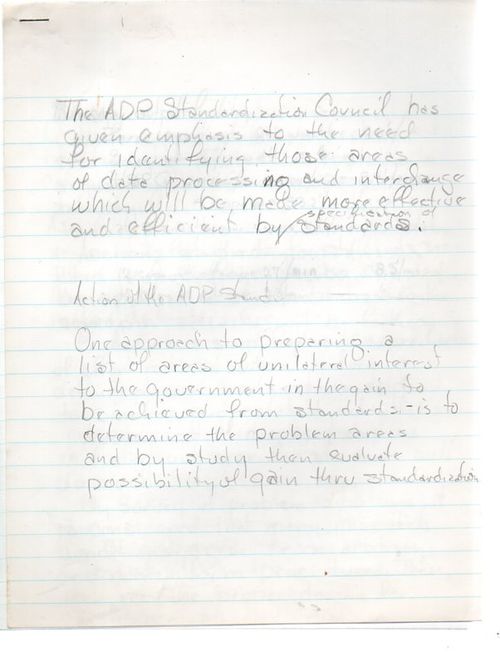 The ADP Standardization Council has
given emphasis to the need
for identifying those areas
of data processing and interchange
which will be made more effective
specification of
and efficient by standards.
Action of the ADP Stand
One approach to preparing a
list of areas of unilateral interest
to the government in the gain to
be achieved from standards - is to
determine the problem areas
and by study then evaluate
possibility of gain thru standardization